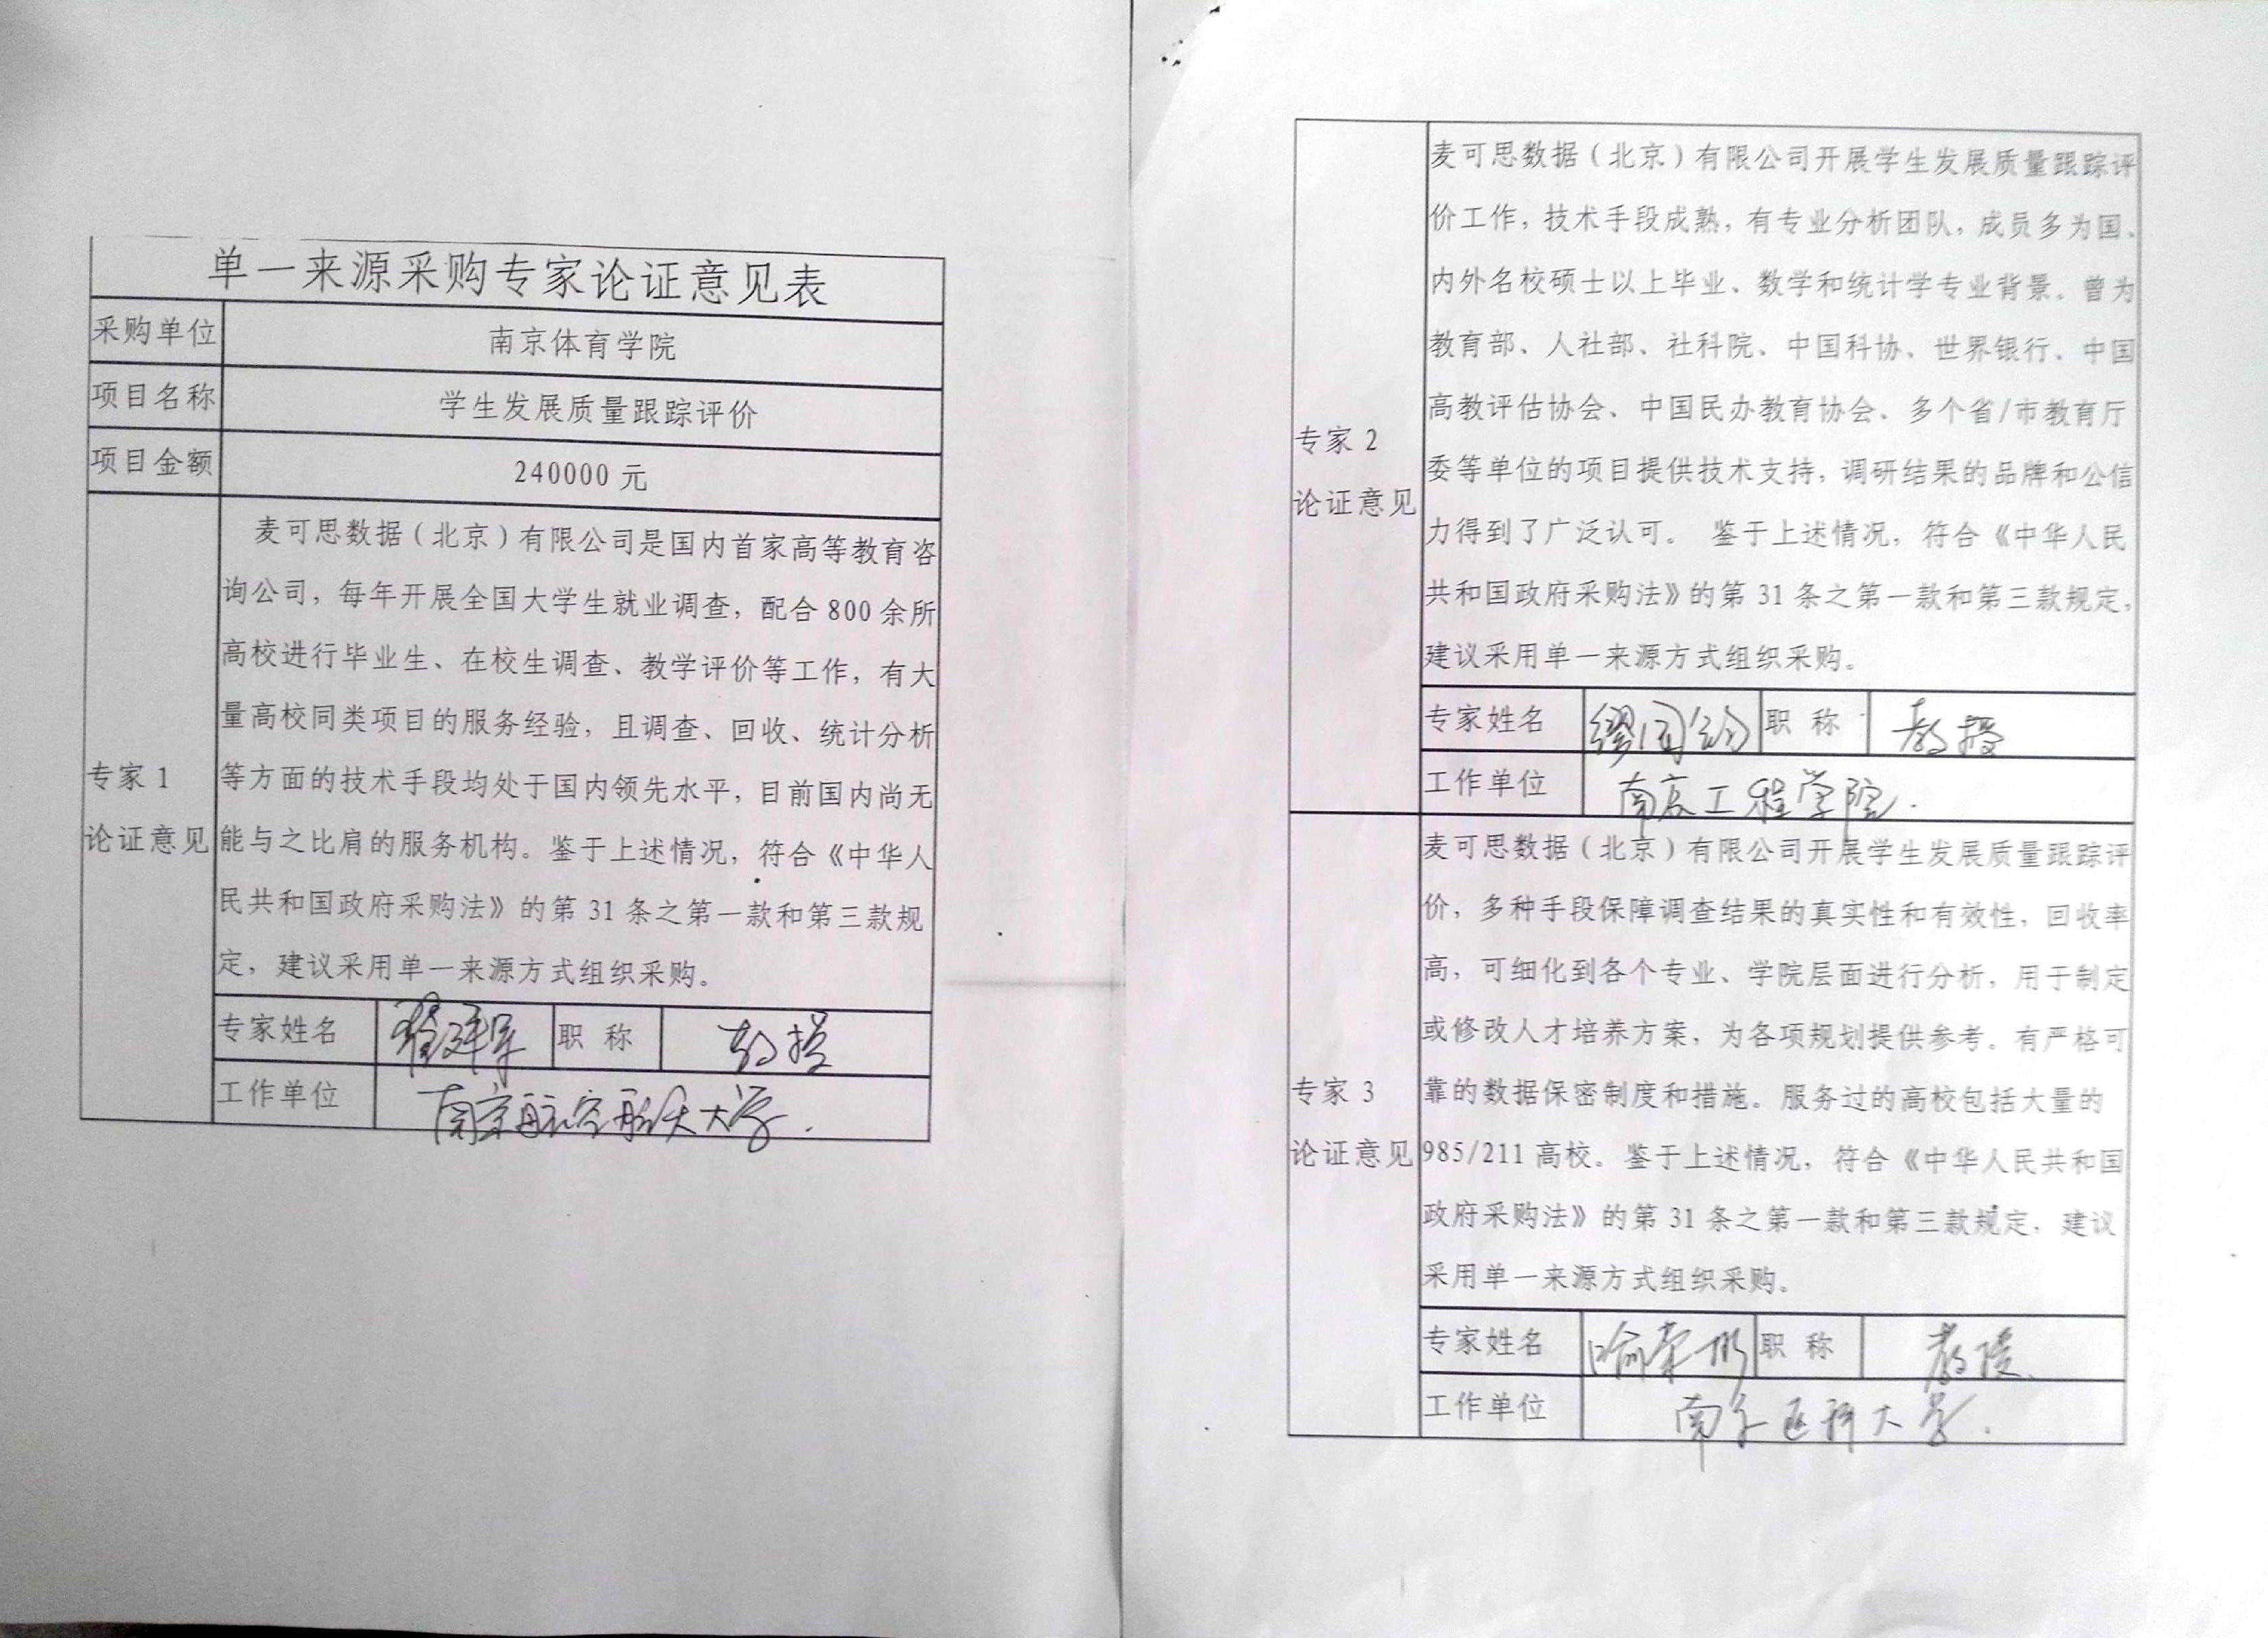 单一来源采购专家论证意见表
采购单位 南京体育学院
项目名称 学生发展质量跟踪评价
项目金额 240000 元
麦可思数据（北京）有限公司是国内首家高等教育咨
询公司，每年开展全国大学生就业调查，配合 800 余所
高校进行毕业生、在校生调查、教学评价等工作，有大
量高校同类项目的服务经验，且调查、回收、统计分析
专家 1
等方面的技术手段均处于国内领先水平，目前国内尚无
论证意见
能与之比肩的服务机构。鉴于上述情况，符合《中华人
民共和国政府采购法》的第 31 条之第一款和第三款规
定，建议采用单一来源方式组织采购。
专家姓名 职 称 教授
工作单位 南京航空航天大学.
麦可思数据（北京）有限公司开展学生发展质量跟踪评
价工作，技术手段成熟，有专业分析团队，成员多为国、
内外名校硕士以上毕业、数学和统计学专业背景。曾为
教育部、人社部、社科院、中国科协、世界银行、中国
高教评估协会、中国民办教育协会、多个省/市教育厅
专家 2
委等单位的项目提供技术支持，调研结果的品牌和公信
论证意见
力得到了广泛认可。 鉴于上述情况，符合《中华人民
共和国政府采购法》的第 31 条之第一款和第三款规定，
建议采用单一来源方式组织采购。
专家姓名 职 称 教授
工作单位 南京工程学院.
麦可思数据（北京）有限公司开展学生发展质量跟踪评
价，多种手段保障调查结果的真实性和有效性，回收率
高，可细化到各个专业、学院层面进行分析，用于制定
或修改人才培养方案，为各项规划提供参考。有严格可
专家 3
靠的数据保密制度和措施。服务过的高校包括大量的
论证意见
985/211 高校。鉴于上述情况，符合《中华人民共和国
政府采购法》的第 31 条之第一款和第三款规定，建议
采用单一来源方式组织采购。
专家姓名 喻荣彬 职 称 教授.
工作单位 南京医科大学.